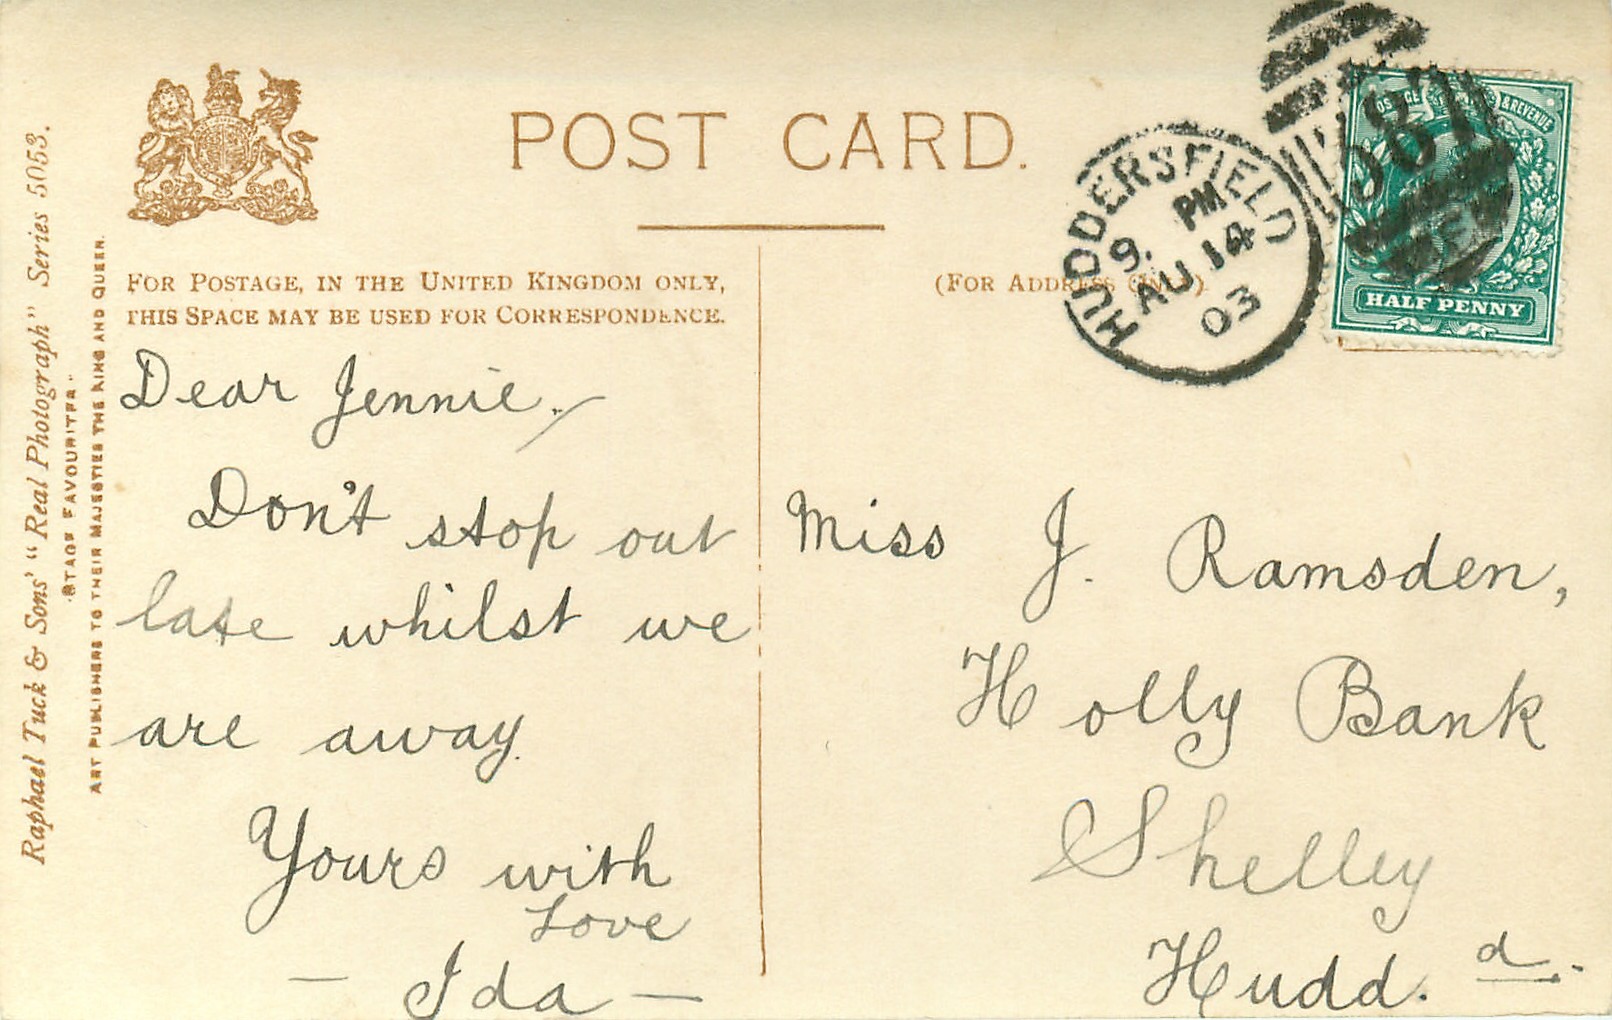 POST CARD.
FOR POSTAGE, IN THE UNITED KINGDOM ONLY,
THIS SPACE MAY BE USED FOR CORRESPONDENCE.
(FOR ADDRESS ONLY).
Raphael Tuck & Sons' "Real Photograph" Series 5053.
"STAGE FAVOURITES"
ART PUBLISHERS TO THEIR MAJESTIES THE KING AND QUEEN.
Dear Jennie,
Don't stop out
late whilst we
are away.
Yours with
Love
— Ida —
HUDDERSFIELD
9. PM
AU 14
03
POSTAGE & REVENUE
HALF PENNY
387
Miss J. Ramsden,
Holly Bank
Shelley
Hudd.d.